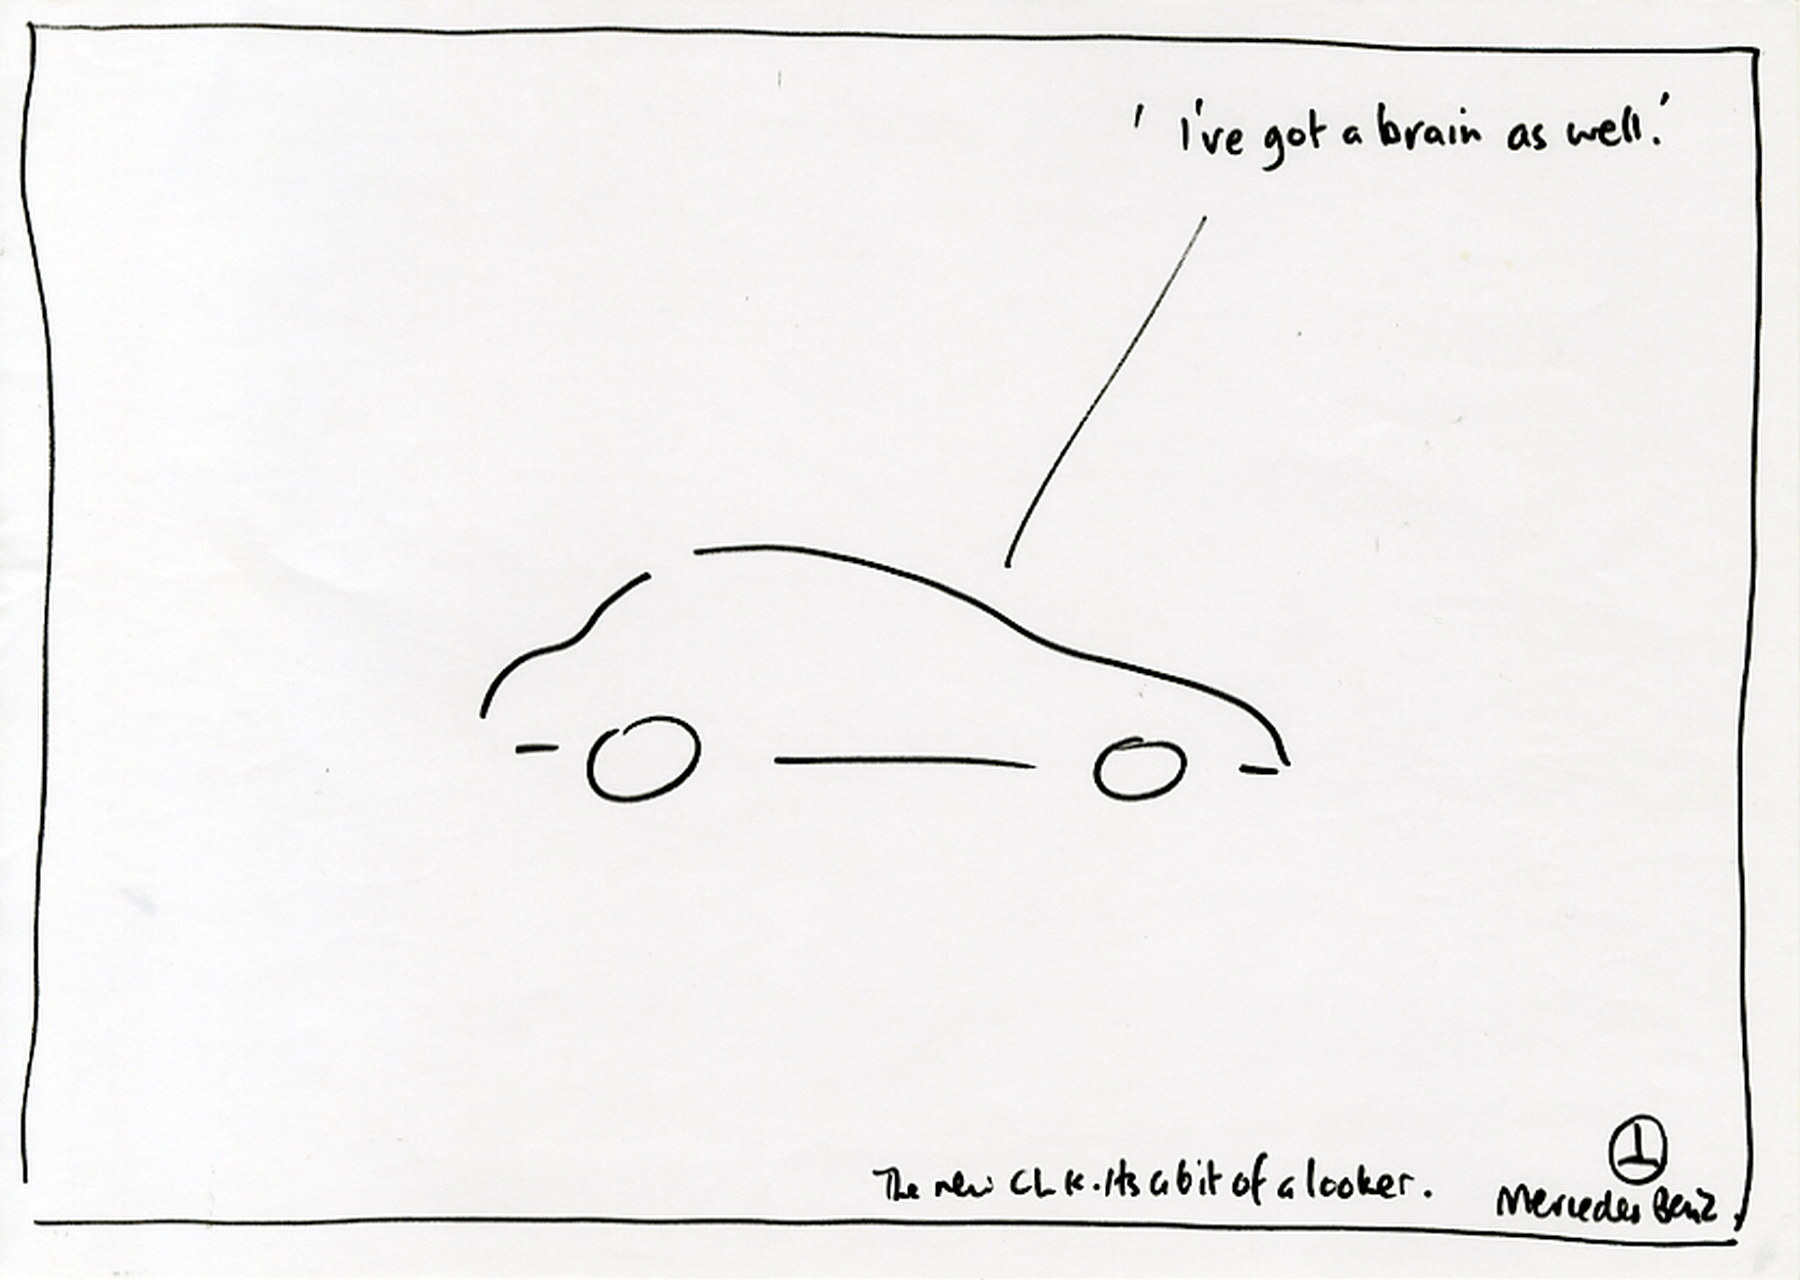 ' I've got a brain as well.'
The new CLK. Its a bit of a looker.
Mercedes Benz.